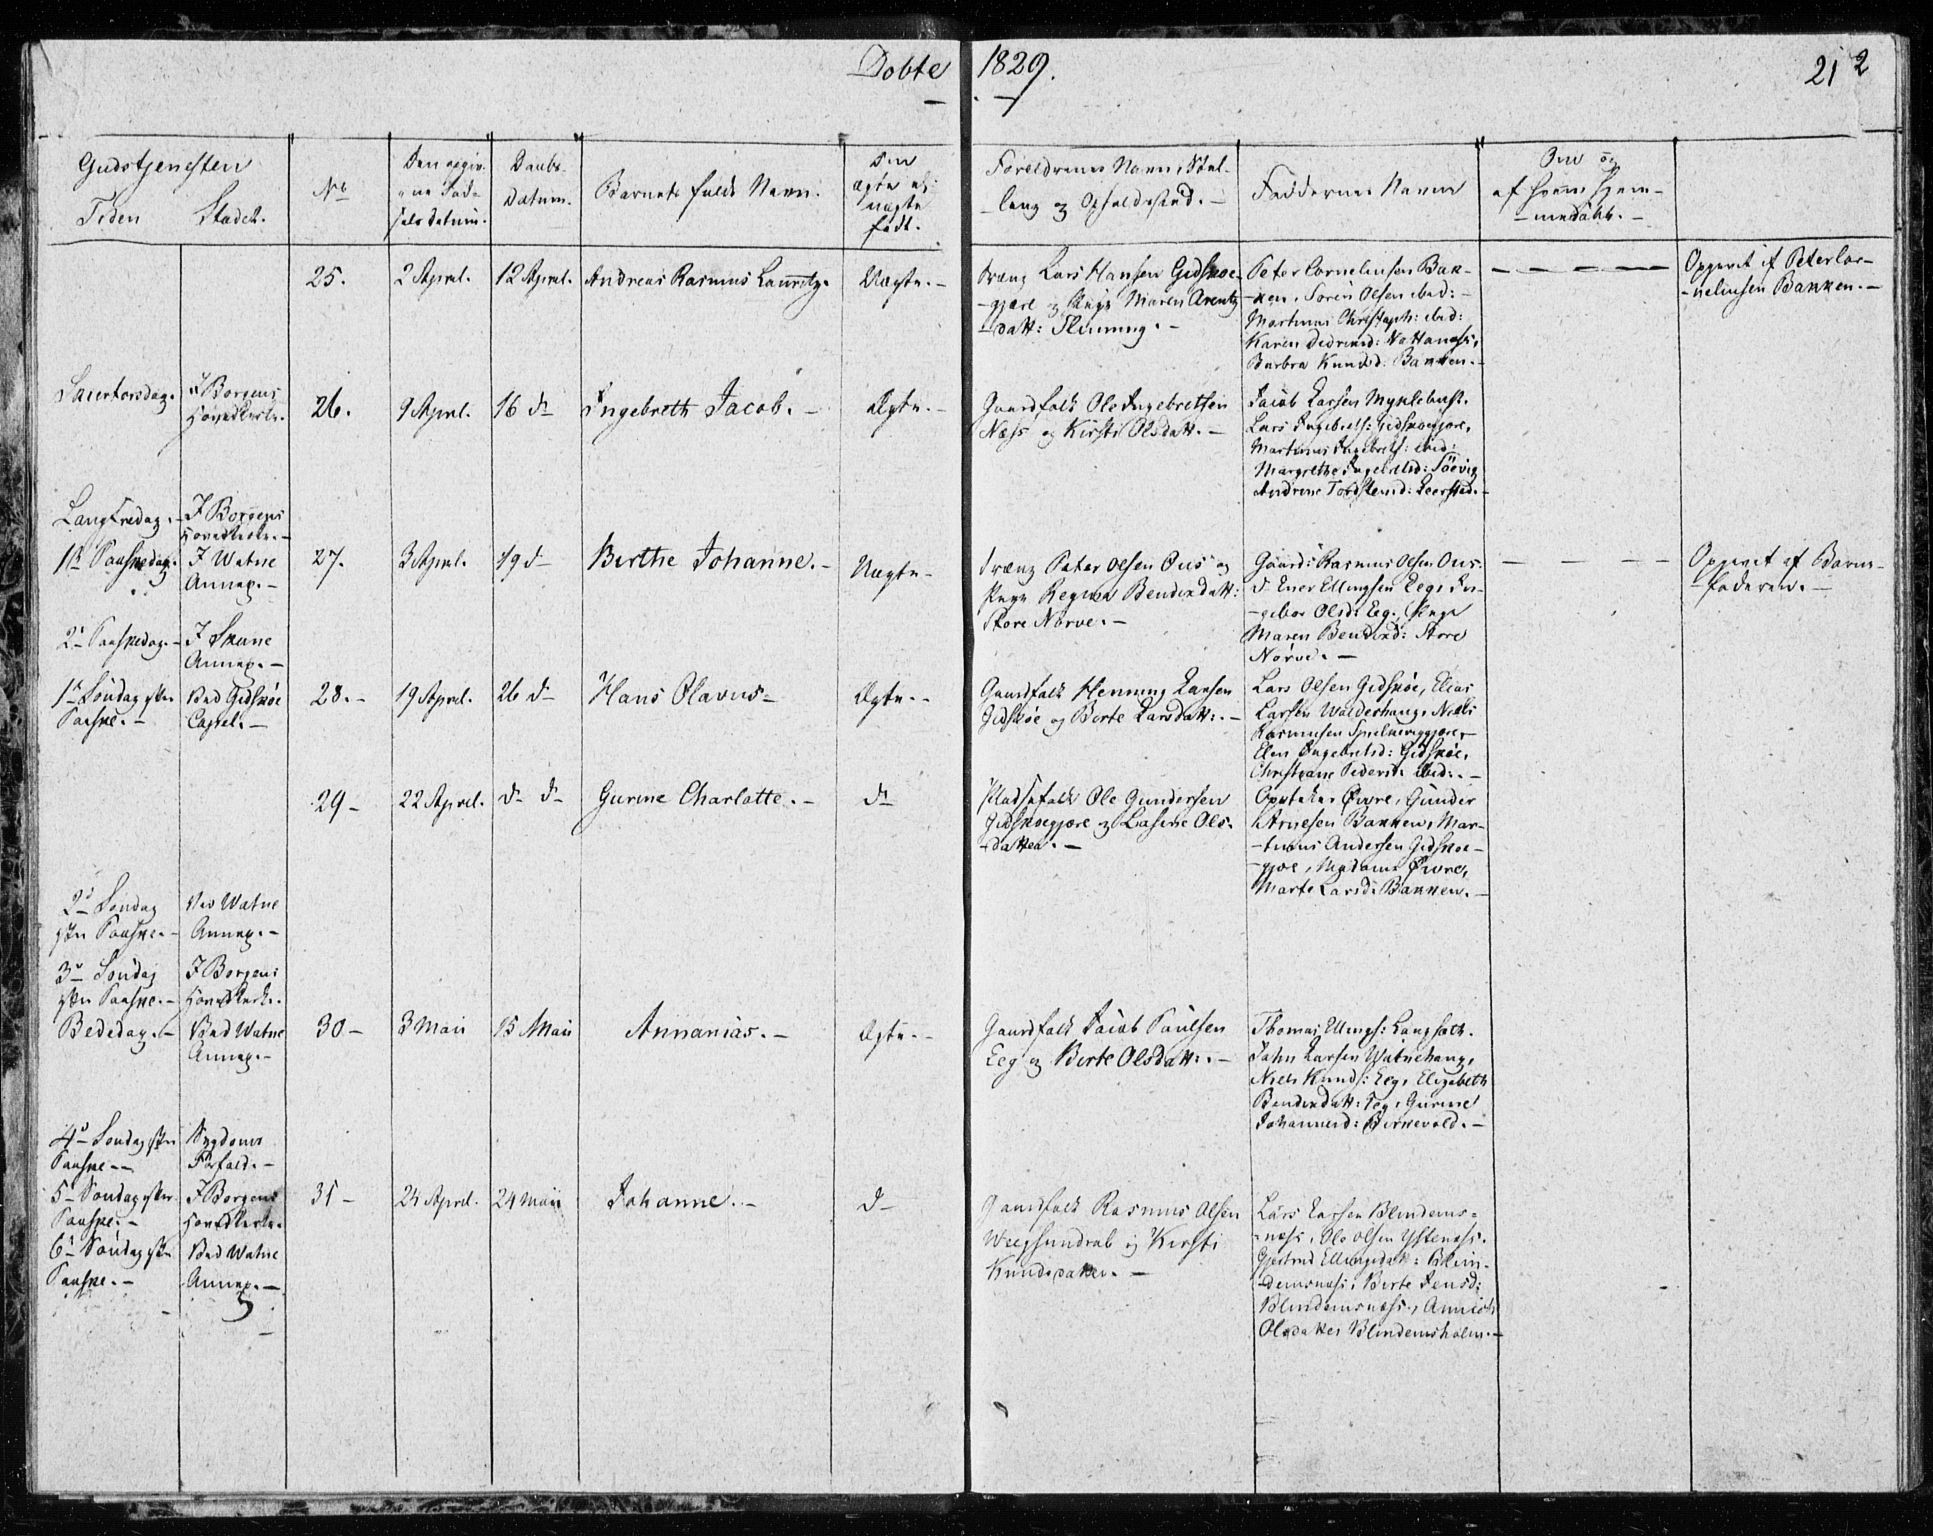 Döbte 1829.
212
Gudstjenesten
Tiden Stædet.
No
Den opgiv-
-ne Fød-
selsdatum.
Daabs-
Datum.
Barnets fulde Navn.
Om
ægte el:
uægte
født.
Foreldrenes Navn, Stil-
-ling og Opholdssted.
Faddernes Navne
Om og
af hvem hjem-
-medøbt.
25. 2 April. 12 April. Andreas Rasmus Lauritz. Uægte.
Dreng Lars Hansen Gidskoe-
-gjære og Pige Maren Arentz-
-datt: Flemming.
Peter Corneliusen Bak-
-ken, Søren Olsen ibid:
Martinus Christoph: ibid:
Karen Didriksd:
Barbra Knudsd: Bakken.
Opgivet af Peter Cor-
-neliusen Bakken.
Skiertorsdag. I Borgens
Hovedkirke.
26. 9 April. 16 d Ingebreth Jacob. Ægte.
Gaardfolk Ole Ingebretsen
Næss og Kirsti Olsdatt.
Jacob Larsen Myklebust.
Lars Ingebrets: Gidskoegjære,
Martinus Ingebrets: ibid:
Margrethe Ingebretsd: Söevig
Andrine Tordstensd: Leerstad.
Langfredag. I Borgens
Hovedkirke.
1 Paaskedag. I Watne
Annex.
27. 3 April. 19 d Birthe Johanne. Uægte
Dreng Peter Olsen Ous og
Pige Regina Bendixdatt:
Store Nørve.
Gaardm: Rasmus Olsen Ous.
d Ener Ellingsen Eeg, In-
-gebor Olsd: Eeg, Pige
Maren Bendixd: Store
Nørve.
Opgivet af Barne-
-faderen.
2 Paaskedag. I Skuue
Annex.
1 Søndag efter
Paaske.
Ved Gidskøe
Capel.
28. 19 April. 26 d Hans Olavus Ægte.
Gaardfolk Henning Larsen
Gidskøe og Berte Larsdatt:.
Lars Olsen Gidskøe, Elias
Larsen Walderhaug, Niels
Rasmusen
Elen Ingebretsd: Gidskøe,
Christiane Pedersd: ibid:.
29 22 April. d d Gurine Charlotte. d
Pladsfolk Ole Gundersen
Gidskoegjære og Lasine Ols-
-datter.
Øvre, Gunder
Arnesen Bakken, Mar-
-tinus Andersen Gidskoe-
-gjøe, Madame Øvre,
Marte Larsd: Bakken.
2 Søndag
efter Paaske.
Ved Watne
Annex.
3 Søndag
efter Paaske.
I Borgens
Hovedkirk.
Bededag. Ved Watne
Annex.
30 3 Maii 15 Maii Annanias. Ægte.
Gaardfolk Jacob Paulsen
Eeg og Berte Olsdatt:.
Thomas Ellings: Langsæth.
John Larsen Watnehaug,
Niels Knuds: Eeg, Elizabeth
Bendixdatt: Eeg, Gurine
Johannesd: Birkevold.
4 Søndag efter
Paaske
Sygdoms
Forfald.
5 Søndag efter
Paaske.
I Borgens
Hovedkirke.
31 24 April. 24 Maii Johanne. d
Gaardfolk Rasmus Olsen
Weegsundral og Kirsti
Knudsdatter.
Lars Larsen Blindems-
-næss, Ole Olsen Ystenæss.
Gjertrud Ellingsdatt: Blin-
-demsnæss, Berte Jensd:
Blindemsnæss, Anne
Olsdatter Blindemsholm.
6 Søndag efter
Paaske.
Ved Watne
Annex.